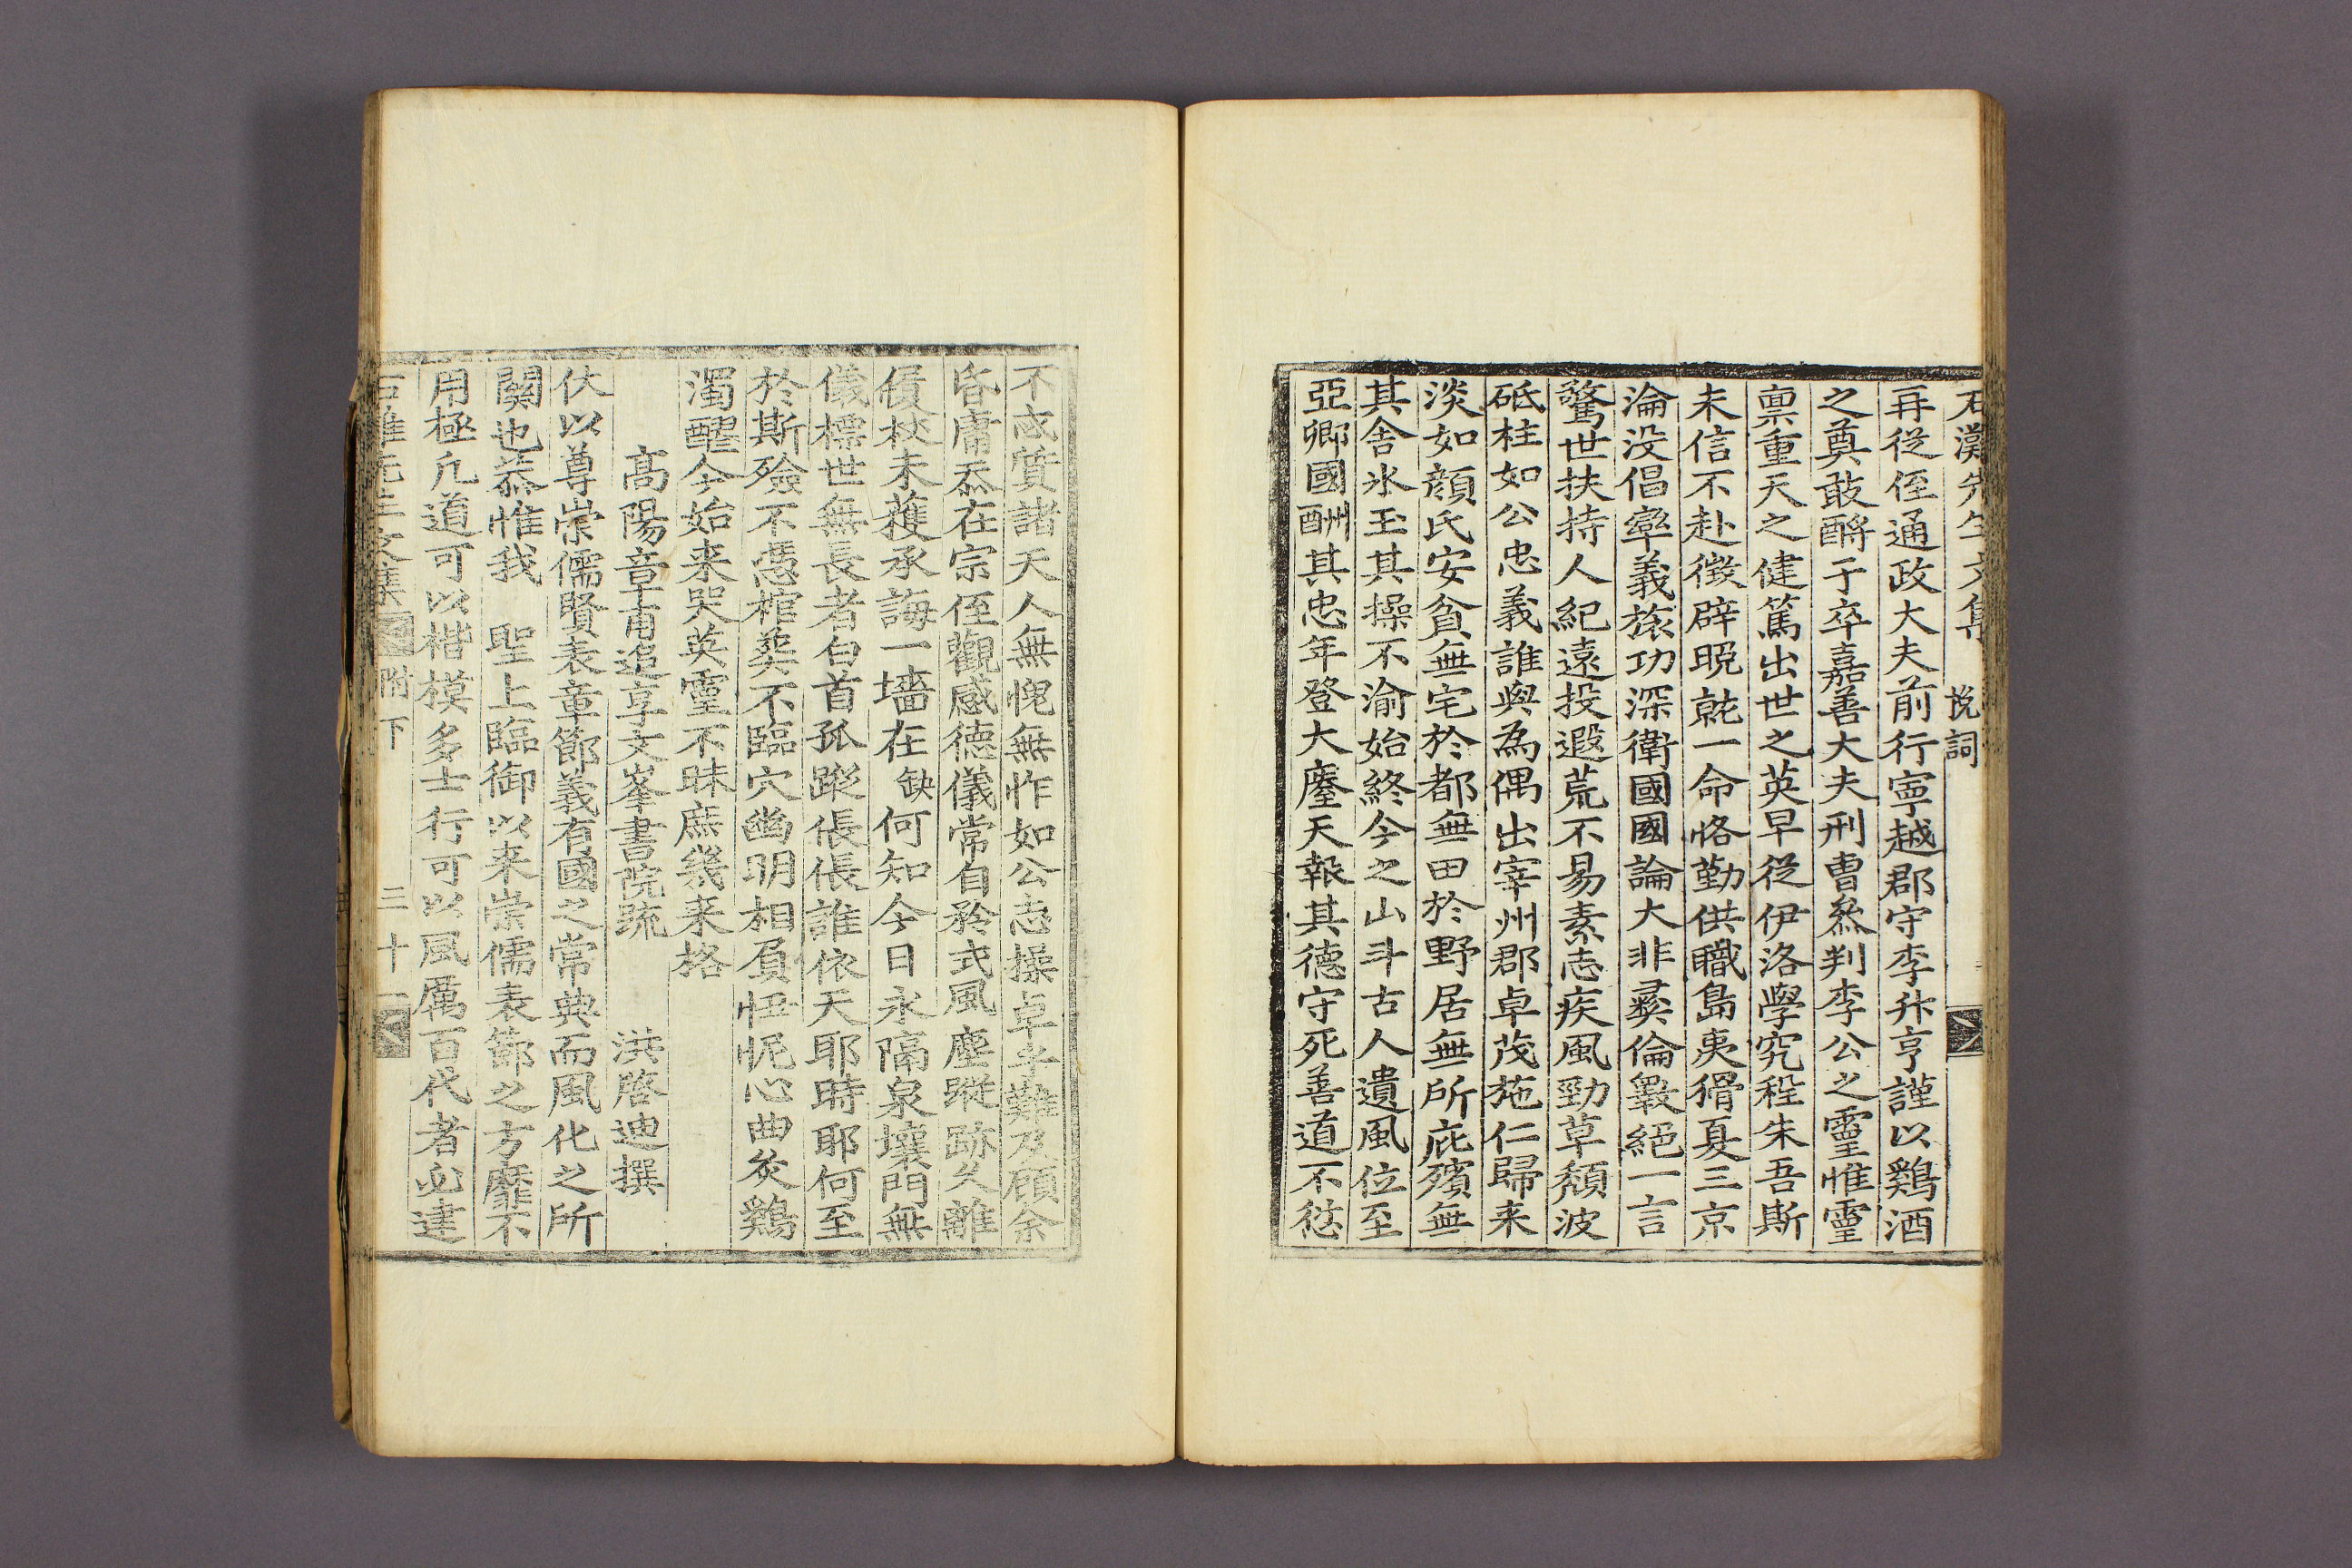 石灘先生文集 挽詞
再從侄通政大夫前行寧越郡守李升亨謹以鷄酒
之奠敢酹于卒嘉善大夫刑曹叅判李公之靈惟靈
禀重天之健篤出世之英早從伊洛學究程朱吾斯
未信不赴徵辟晚就一命恪勤供職島夷猾夏三京
淪没倡率義旅功深衛國國論大非彛倫斁絕一言
驚世扶持人紀遠投遐荒不易素志疾風勁草頹波
砥柱如公忠義誰與為偶出宰州郡卓茂施仁歸来
淡如顔氏安貧無宅於都無田於野居無所庇殯無
其舍氷玉其操不渝始終今之山斗古人遺風位至
亞卿國酬其忠年登大耋天報其德守死善道不愆
不忒質諸天人無愧無怍如公志操卓乎難及顧余
昏庸忝在宗侄觀感德儀常自矜式風塵蹤跡久離
候
未獲承誨一墻在缺何知今日永隔泉壤門無
儀標世無長者白首孤蹤倀倀誰依天耶時耶何至
於斯斯殮不憑棺葬不臨穴幽明相負忸怩心曲炙鷄
濁醪今始来哭英靈不昧庶幾来格
高陽章甫追享文峯書院疏 洪啓迪撰
伏以尊崇儒賢表章節義有國之常典而風化之所
關也恭惟我 聖上臨御以来崇儒表節之方靡不
用極凡道可以楷模多士行可以風厲百代者必建
石灘先生文集 附下 三十一